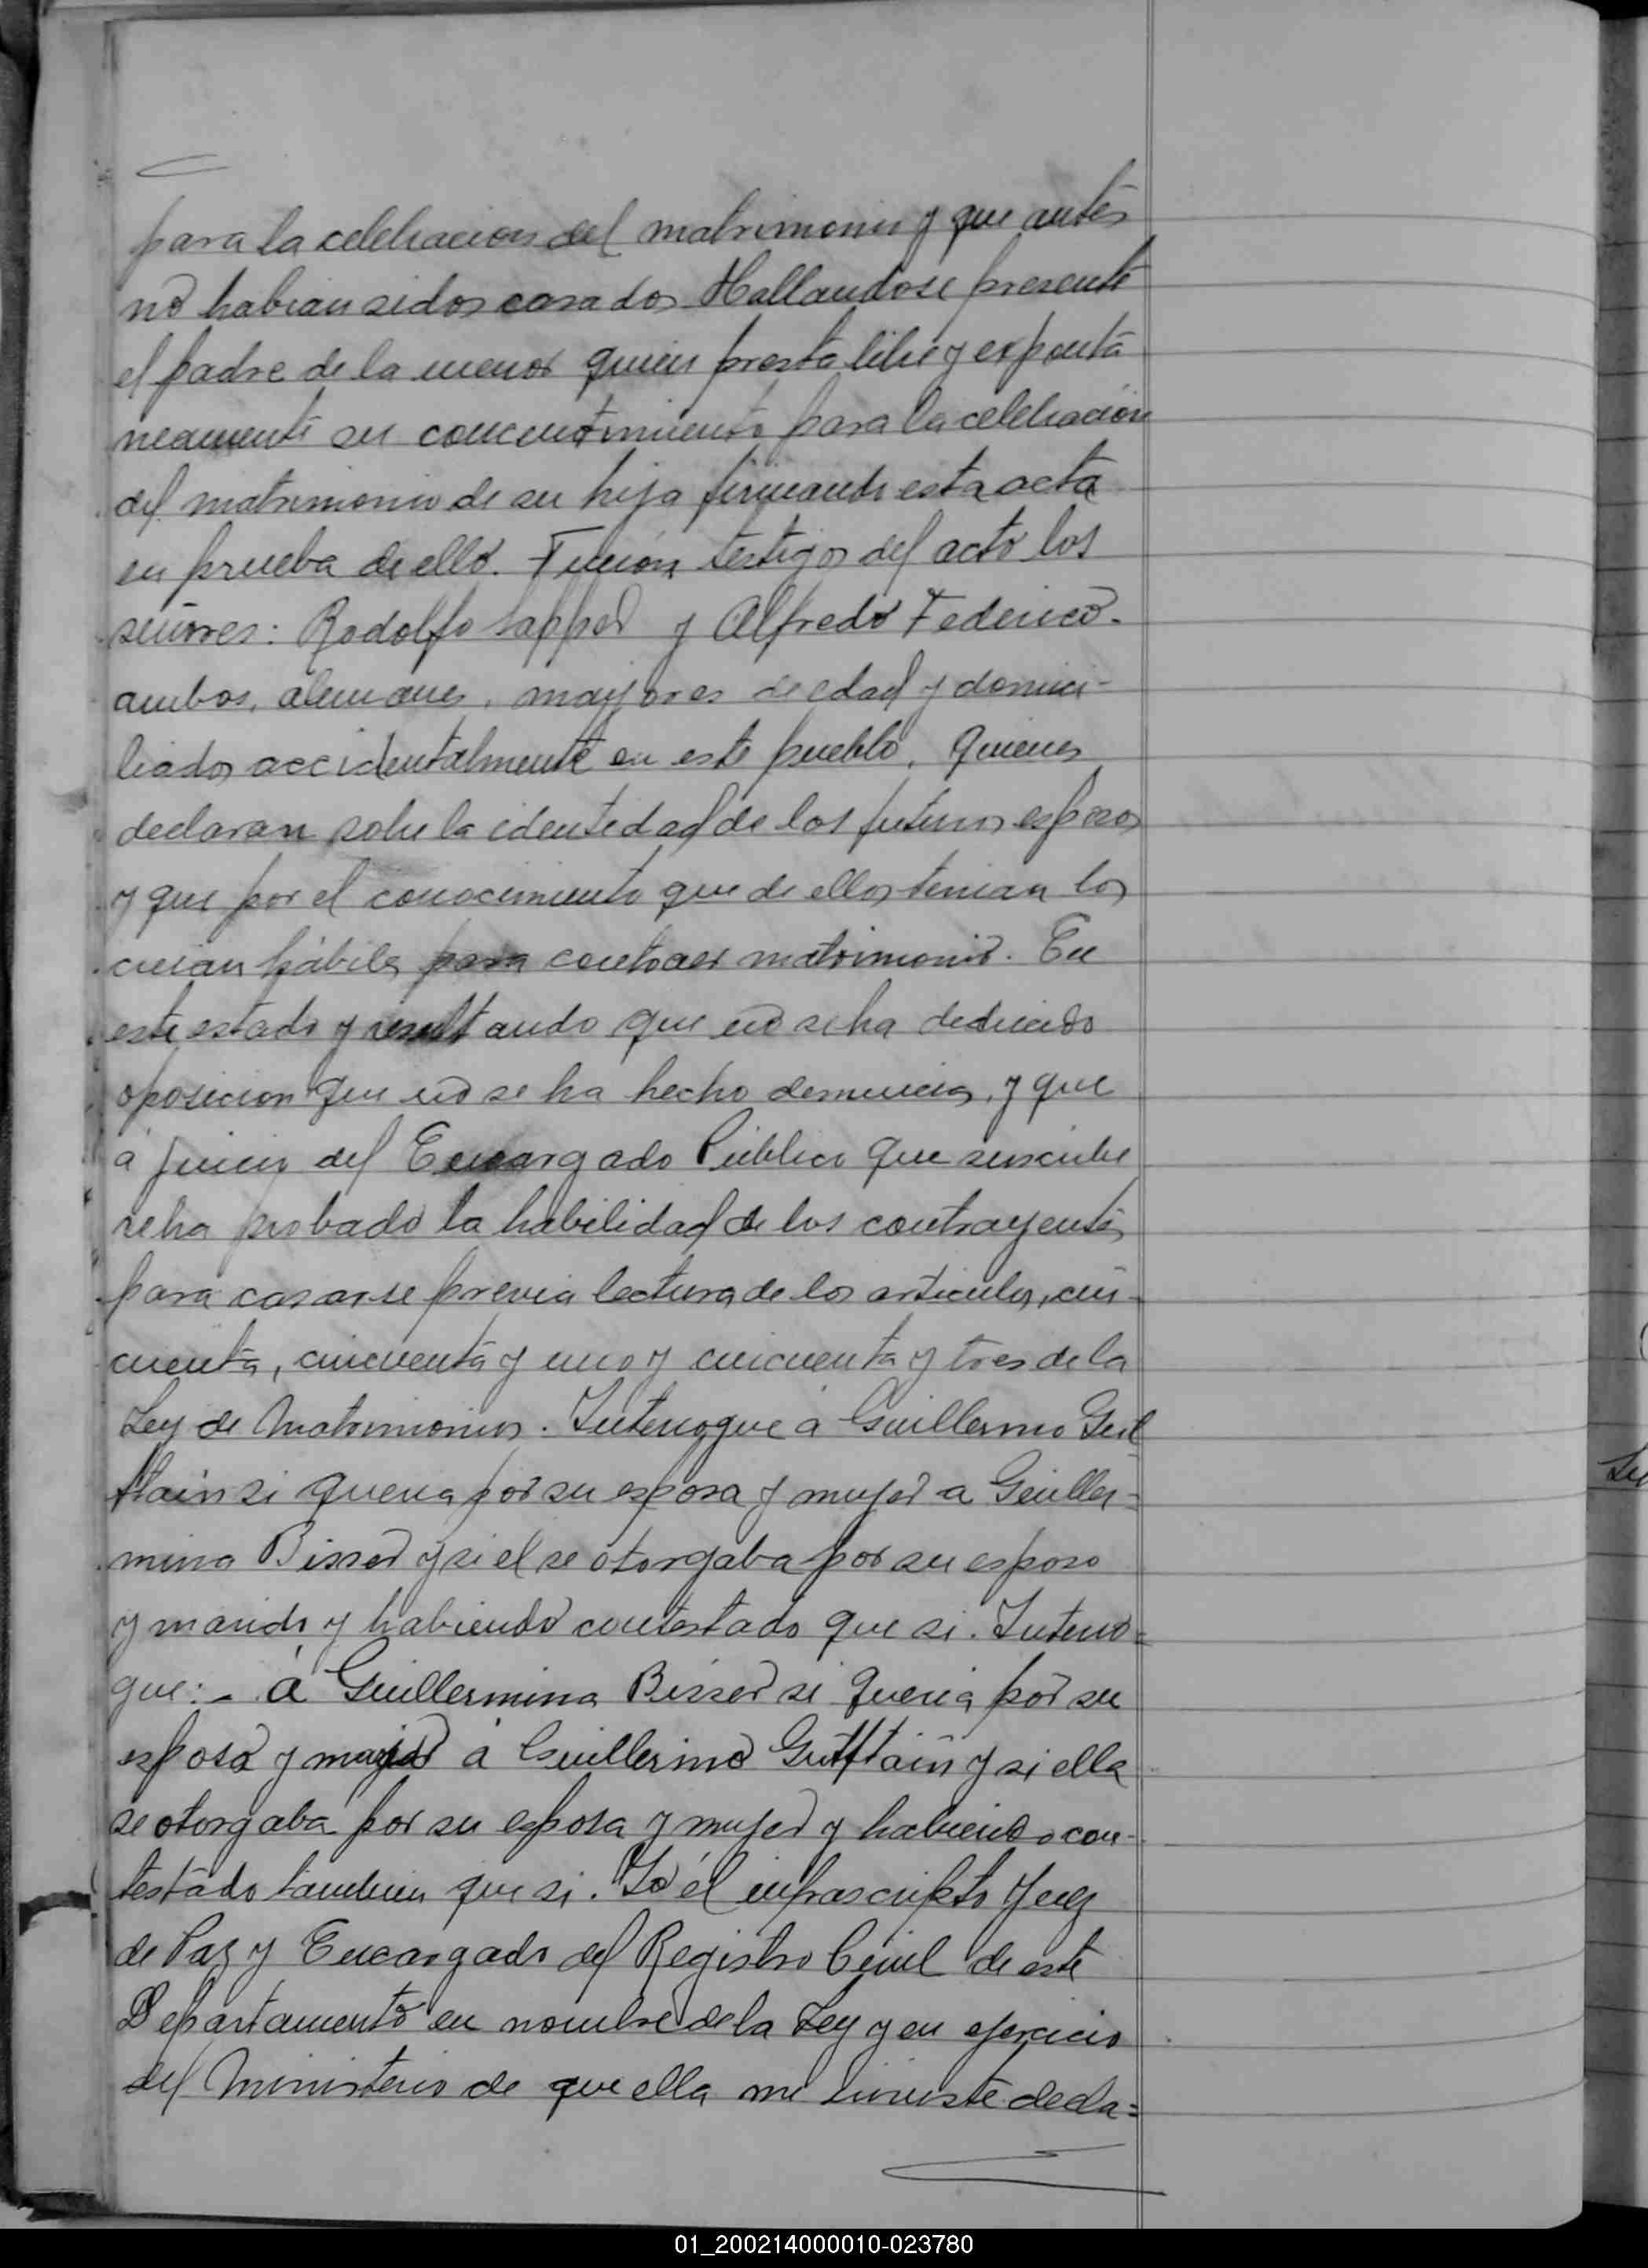 para la celebracion del matrimonio y que antes
no habian sidos casados. Hallandose presente
el padre de la menor quien presta libre y expontá
neamente su concentimiento para la celebración
del matrimonio de su hija firmando esta acta
en prueba de ello. Fueron testigos del acto los
señores: Rodolfo Sapper y Alfredo Federico.
ambos, alemanes, mayores de edad y domici-
liados accidentalmente en este pueblo, quienes
declaran sobre la identidad de los futuros esposos
y que por el conocimiento que de ellos tenian los
creian hábiles para contraer matrimonio. En
este estado y resultando que no se ha deducido
oposicion que no se ha hecho denuncia, y que
á juicio del Encargado Público que suscribe
se ha probado la habilidad de los contrayentes
para casarse previa lectura de los articulos, cin-
cuenta, cincuenta y uno y cincuenta y tres de la
Ley de Matrimonios. Interrogue á Guillermo
si queria por su esposa y mujer a Guiller-
mina Bisser y si el se otorgaba por su esposo
y marido y habiendo contestado que si. Interro=
gue: - á Guillermina Bisser si queria por su
esposo y á Guillermo y si ella
se otorgaba por su esposa y mujer y habiendo con-
testado tambien que si. Yo él infrascripto Juez
de Paz y Encargado del Registro Civil de este
Departamento en nombre de la Ley y en ejercicio
del Ministerio de que ella me inviste decla=
01_200214000010-023780